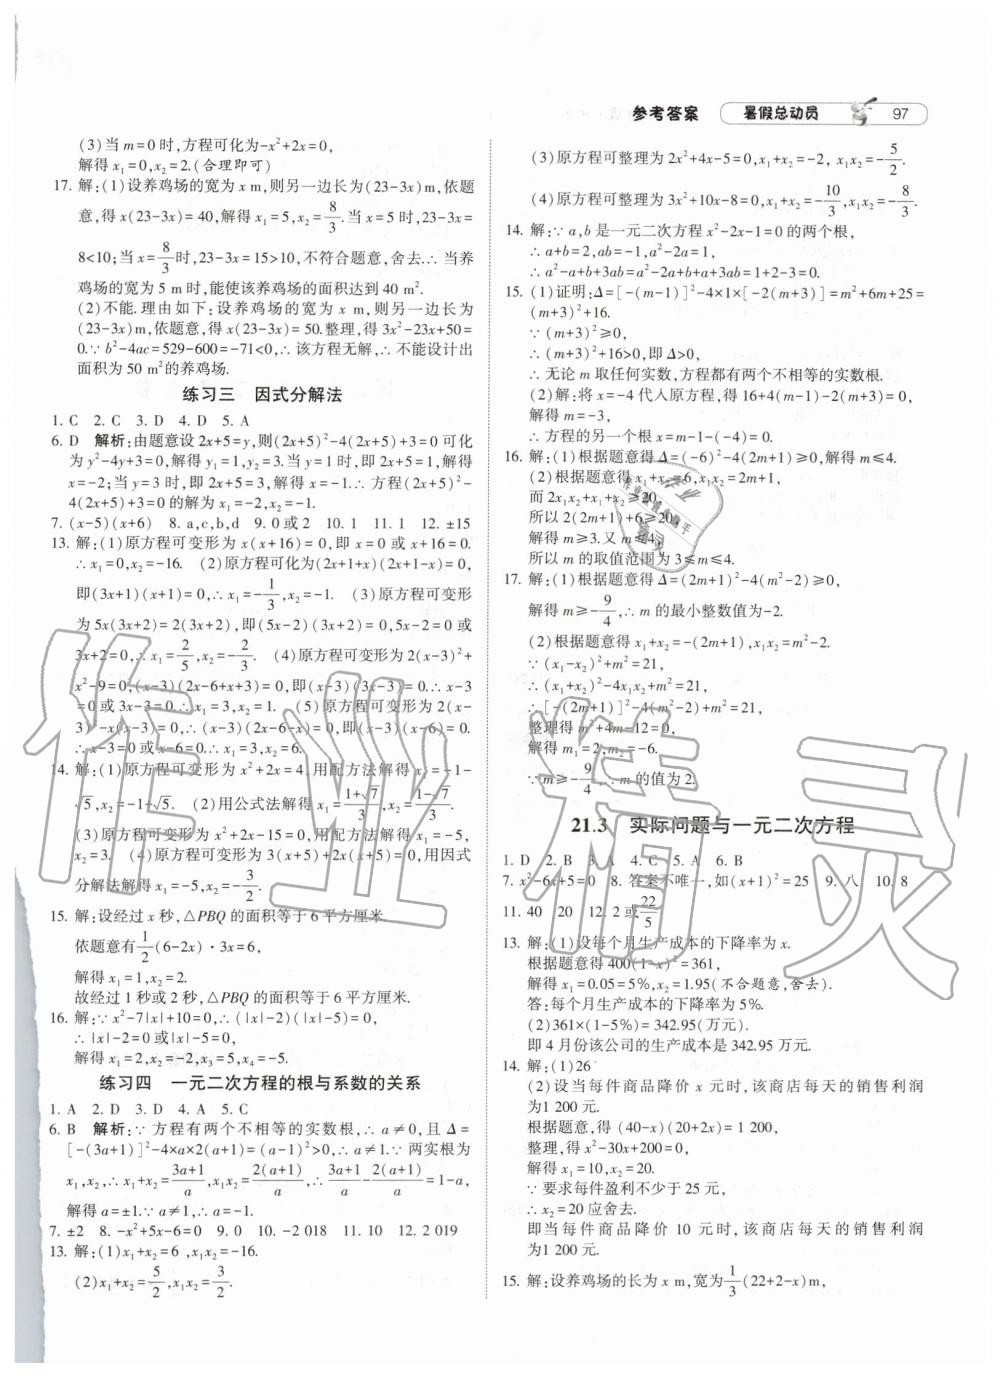 参考答案 暑假总动员 97
(3)当 m=0 时,方程可化为-x²+2x=0,
解得 x₁=0,x₂=2.(合理即可)
17. 解:(1)设养鸡场的宽为 x m,则另一边长为(23-3x)m,依题
意,得 x(23-3x)=40,解得 x₁=5,x₂=8/3.当 x=5 时,23-3x=
8<10;当 x=8/3时,23-3x=15>10,不符合题意,舍去.∴ 当养
鸡场的宽为 5 m 时,能使该养鸡场的面积达到 40 m².
(2)不能.理由如下:设养鸡场的宽为 x m,则另一边长为
(23-3x)m,依题意,得 x(23-3x)=50.整理,得 3x²-23x+50=
0.∵ b²-4ac=529-600=-71<0,∴ 该方程无解,∴ 不能设计出
面积为 50 m²的养鸡场.
练习三 因式分解法
1. C 2. C 3. D 4. D 5. A
6. D 解析:由题意设 2x+5=y,则(2x+5)²-4(2x+5)+3=0 可化
为 y²-4y+3=0,解得 y₁=1,y₂=3.当 y=1 时,即 2x+5=1,解得
x=-2;当 y=3 时,即 2x+5=3,解得 x=-1.∴ 方程(2x+5)²-
4(2x+5)+3=0 的解为 x₁=-2,x₂=-1.
7. (x-5)(x+6) 8. a,c,b,d 9. 0 或 2 10. 1 11. 1 12. ±15
13. 解:(1)原方程可变形为 x(x+16)=0,即 x=0 或 x+16=0.
∴ x₁=0,x₂=-16. (2)原方程可化为(2x+1+x)(2x+1-x)=0,
即(3x+1)(x+1)=0,∴ x₁=-1/3,x₂=-1. (3)原方程可变形
为 5x(3x+2)=2(3x+2),即(5x-2)(3x+2)=0,5x-2=0 或
3x+2=0,∴ x₁=2/5,x₂=-2/3. (4)原方程可变形为 2(x-3)²+
x²-9=0,(x-3)(2x-6+x+3)=0,即(x-3)(3x-3)=0.∴ x-3
=0 或 3x-3=0.∴ x₁=3,x₂=1. (5)原方程可变形为 2(x-
3)²-x(x-3)=0,(x-3)(2x-6-x)=0,即(x-3)(x-6)=0.
∴ x-3=0 或 x-6=0.∴ x₁=3,x₂=6.
14. 解:(1)原方程可变形为 x²+2x=4,用配方法解得 x₁=-1-
√5,x₂=-1+√5. (2)用公式法解得 x₁=1+√7/3,x₂=1-√7/3.
(3)原方程可变形为 x²+2x-15=0,用配方法解得 x₁=-5,
x₂=3. (4)原方程可变形为 3(x+5)+2x(x+5)=0,用因式
分解法解得 x₁=-5,x₂=-3/2.
15. 解:设经过 x 秒,△PBQ 的面积等于 6 平方厘米.
依题意有1/2(6-2x)·3x=6,
解得 x₁=1,x₂=2.
故经过 1 秒或 2 秒,△PBQ 的面积等于 6 平方厘米.
16. 解:∵ x²-7|x|+10=0,∴ (|x|-2)(|x|-5)=0,
∴ |x|-2=0 或|x|-5=0,
解得 x₁=2,x₂=-2,x₃=5,x₄=-5.
练习四 一元二次方程的根与系数的关系
1. A 2. D 3. D 4. A 5. C
6. B 解析:∵ 方程有两个不相等的实数根,∴ a≠0,且 Δ=
[-(3a+1)]²-4×a×2(a+1)=(a-1)²>0,∴ a≠1.∵ 两实根为
x₁,x₂,∴ x₁+x₂=3a+1/a,x₁x₂=2(a+1)/a,∴ 3a+1/a-2(a+1)/a=1-a,
解得 a=±1.∵ a≠1,∴ a=-1.
7. ±2 8. -x²+5x-6=0 9. 0 10. -2 018 11. 10 12. 2 019
13. 解:(1)x₁+x₂=6 ,x₁x₂=-16.
(2)x₁+x₂=5/2,x₁x₂=3/2.
(3)原方程可整理为 2x²+4x-5=0,x₁+x₂=-2, x₁x₂=-5/2.
(4)原方程可整理为 3x²+10x-8=0,x₁+x₂=-10/3,x₁x₂=-8/3.
14. 解:∵ a,b 是一元二次方程 x²-2x-1=0 的两个根,
∴ a+b=2,ab=-1,a²-2a=1,
∴ a²-a+b+3ab=a²-2a+b+a+3ab=1+2-3=0.
15. (1)证明:Δ=[-(m-1)]²-4×1×[-2(m+3)]=m²+6m+25=
(m+3)²+16.
∵ (m+3)²≥0,
∴ (m+3)²+16>0,即 Δ>0,
∴ 无论 m 取任何实数,方程都有两个不相等的实数根.
(2)解:将 x=-4 代入原方程,得 16+4(m-1)-2(m+3)=0,
解得 m=-3,
∴ 方程的另一个根 x=m-1-(-4)=0.
16. 解:(1)根据题意得 Δ=(-6)²-4(2m+1)≥0,解得 m≤4.
(2)根据题意得 x₁+x₂=6,x₁x₂=2m+1,
而 2x₁x₂+x₁+x₂≥20,
所以 2(2m+1)+6≥20,
解得 m≥3.又 m≤4,
所以 m 的取值范围为 3≤m≤4.
17. 解:(1)根据题意得 Δ=(2m+1)²-4(m²-2)≥0,
解得 m≥-9/4,∴ m 的最小整数值为-2.
(2)根据题意得 x₁+x₂=-(2m+1),x₁x₂=m²-2.
∵ (x₁-x₂)²+m²=21,
∴ (x₁+x₂)²-4x₁x₂+m²=21,
∴ [-(2m+1)]²-4(m²-2)+m²=21,
整理得 m²+4m-12=0,
解得 m₁=2,m₂=-6.
∵ m≥-9/4,∴ m 的值为 2.
21.3 实际问题与一元二次方程
1. D 2. B 3. A 4. C 5. A 6. B
7. x²-6x+5=0 8. 答案不唯一,如(x+1)²=25 9. 八 10. 8
11. 40 20 12. 2 或22/5
13. 解:(1)设每个月生产成本的下降率为 x.
根据题意得 400(1-x)²=361,
解得 x₁=0.05=5%,x₂=1.95(不合题意,舍去).
答:每个月生产成本的下降率为 5%.
(2)361×(1-5%)=342.95(万元).
即 4 月份该公司的生产成本是 342.95 万元.
14. 解:(1)26
(2)设当每件商品降价 x 元时,该商店每天的销售利润
为 1 200 元.
根据题意,得 (40-x)(20+2x)=1 200,
整理,得 x²-30x+200=0,
解得 x₁=10,x₂=20.
∵ 要求每件盈利不少于 25 元,
∴ x₂=20 应舍去.
即当每件商品降价 10 元时,该商店每天的销售利润
为 1 200 元.
15. 解:设养鸡场的长为 x m,宽为1/3(22+2-x)m,
作业精灵